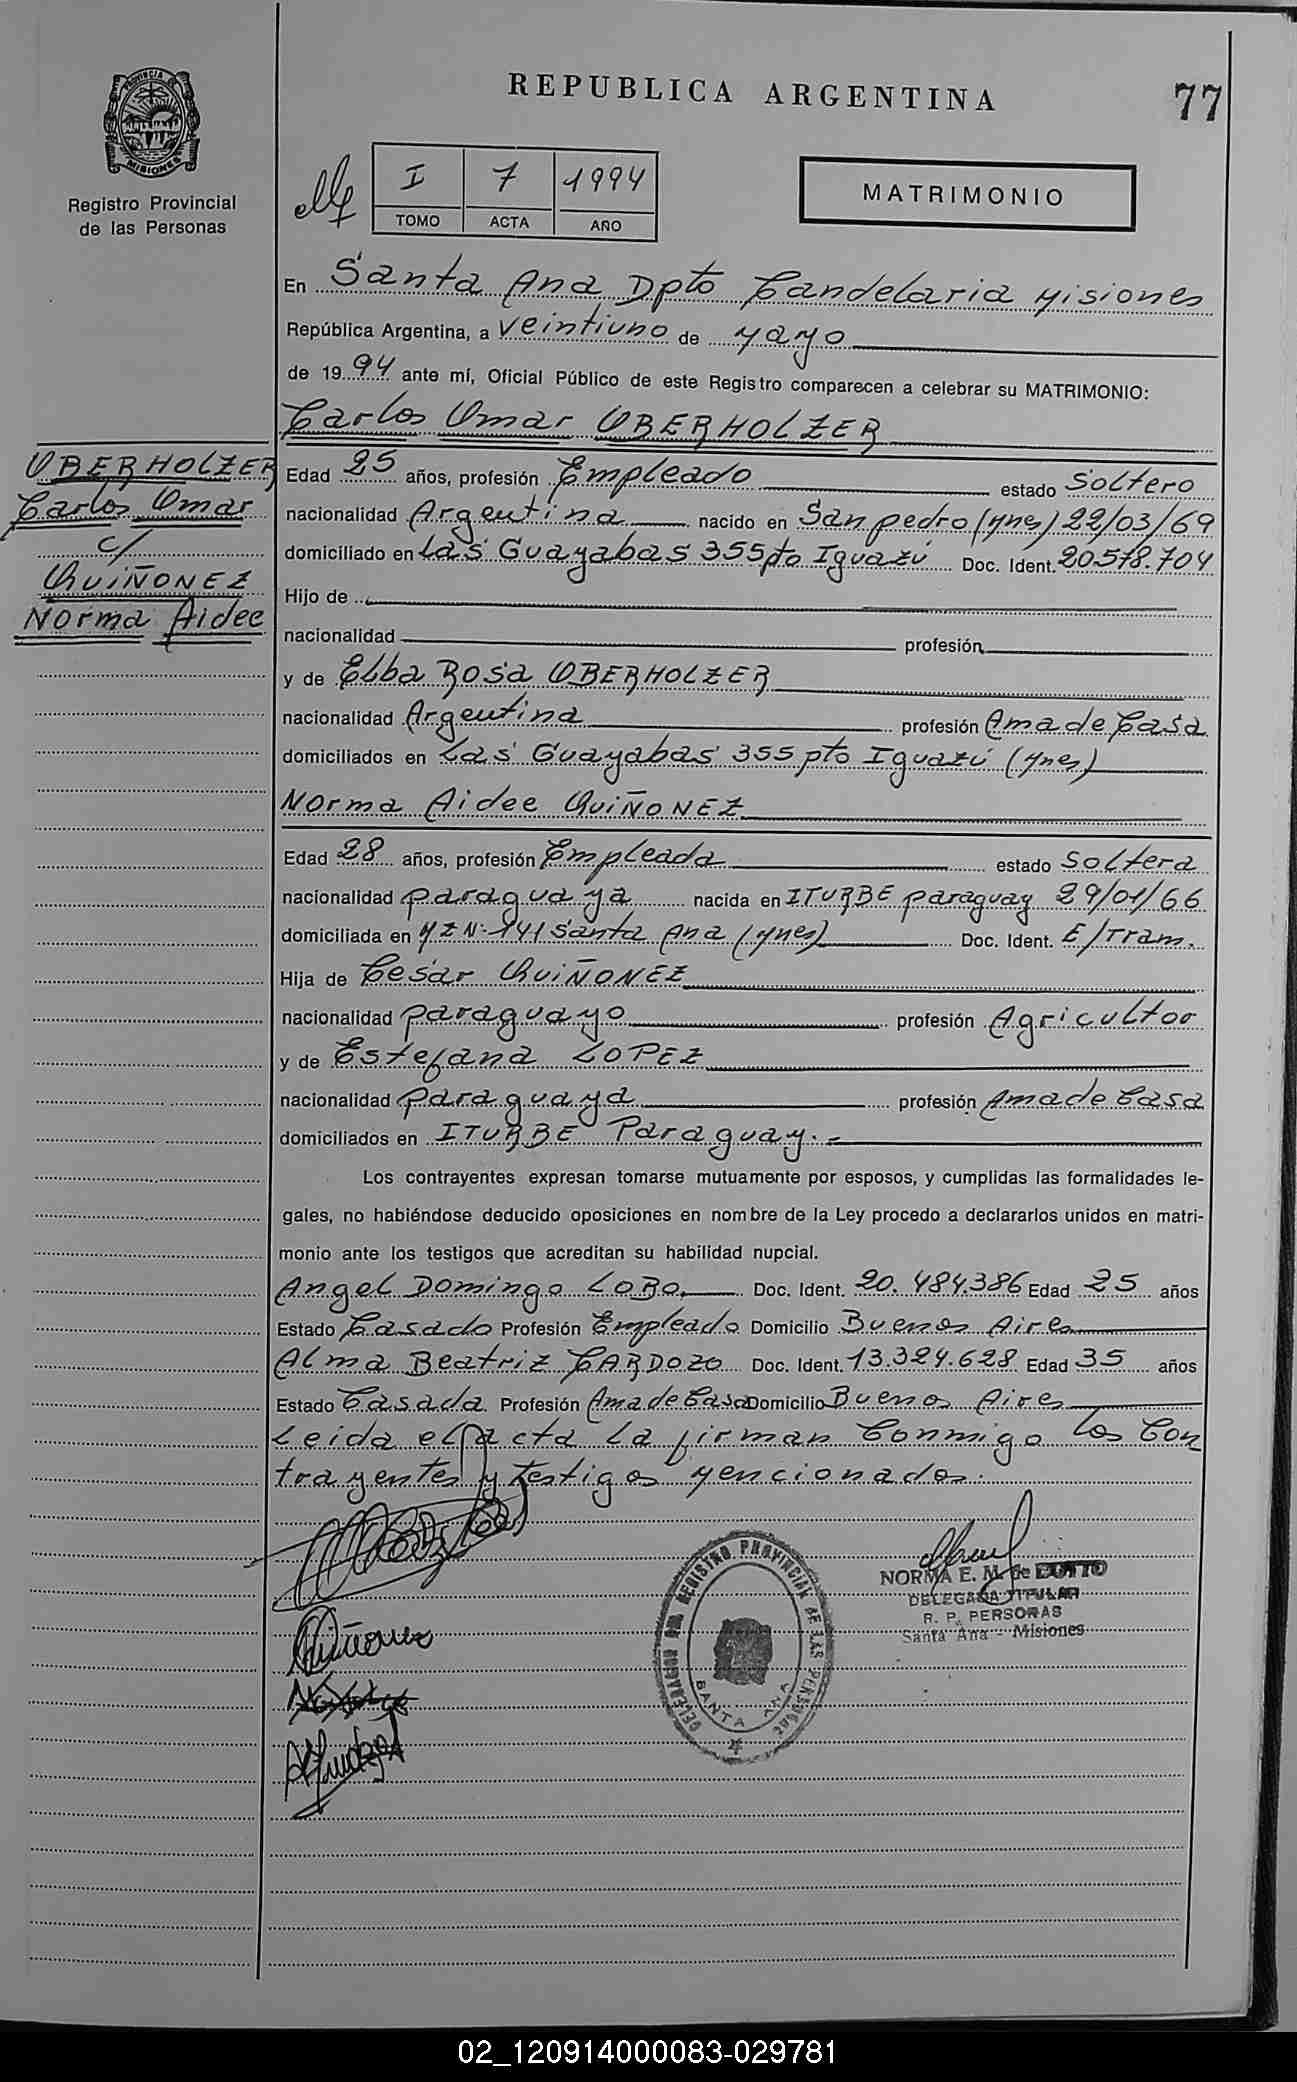 REPUBLICA ARGENTINA
77
PROVINCIA DE
MISIONES
Registro Provincial
de las Personas
I 7 1994
TOMO ACTA AÑO
MATRIMONIO
En Santa Ana Dpto Candelaria Misiones
República Argentina, a veintiuno de Mayo
de 1994 ante mí, Oficial Público de este Registro comparecen a celebrar su MATRIMONIO:
Carlos Omar OBERHOLZER
OBERHOLZER
Carlos Omar
c/
QUIÑONEZ
Norma Aidee
Edad 25 años, profesión Empleado estado Soltero
nacionalidad Argentina nacido en San pedro (Mnes) 22/03/69
domiciliado en Las Guayabas 355 pto Iguazú Doc. Ident. 20.578.704
Hijo de
nacionalidad profesión
y de Elba Rosa OBERHOLZER
nacionalidad Argentina profesión Ama de Casa
domiciliados en Las Guayabas 355 pto Iguazú (Mnes)
Norma Aidee QUIÑONEZ
Edad 28 años, profesión Empleada estado Soltera
nacionalidad paraguaya nacida en ITURBE paraguay 29/01/66
domiciliada en MZ Nº 141 Santa Ana (Mnes) Doc. Ident. E/Tram.
Hija de Cesar QUIÑONEZ
nacionalidad paraguayo profesión Agricultor
y de Estefana LOPEZ
nacionalidad paraguaya profesión Ama de Casa
domiciliados en ITURBE Paraguay.=
Los contrayentes expresan tomarse mutuamente por esposos, y cumplidas las formalidades le-
gales, no habiéndose deducido oposiciones en nombre de la Ley procedo a declararlos unidos en matri-
monio ante los testigos que acreditan su habilidad nupcial.
Angel Domingo LOBO Doc. Ident. 20.484.386 Edad 25 años
Estado Casado Profesión Empleado Domicilio Buenos Aires
Alma Beatriz CARDOZO Doc. Ident. 13.324.628 Edad 35 años
Estado Casada Profesión Ama de Casa Domicilio Buenos Aires
Leida el acta la firman Conmigo los Con
trayentes y testigos Mencionados.
Quiñonez
DELEGACION DEL REGISTRO PROVINCIAL DE LAS PERSONAS
SANTA ANA
NORMA E. M. de
DELEGADA TITULAR
R. P. PERSONAS
Santa Ana - Misiones
02_120914000083-029781